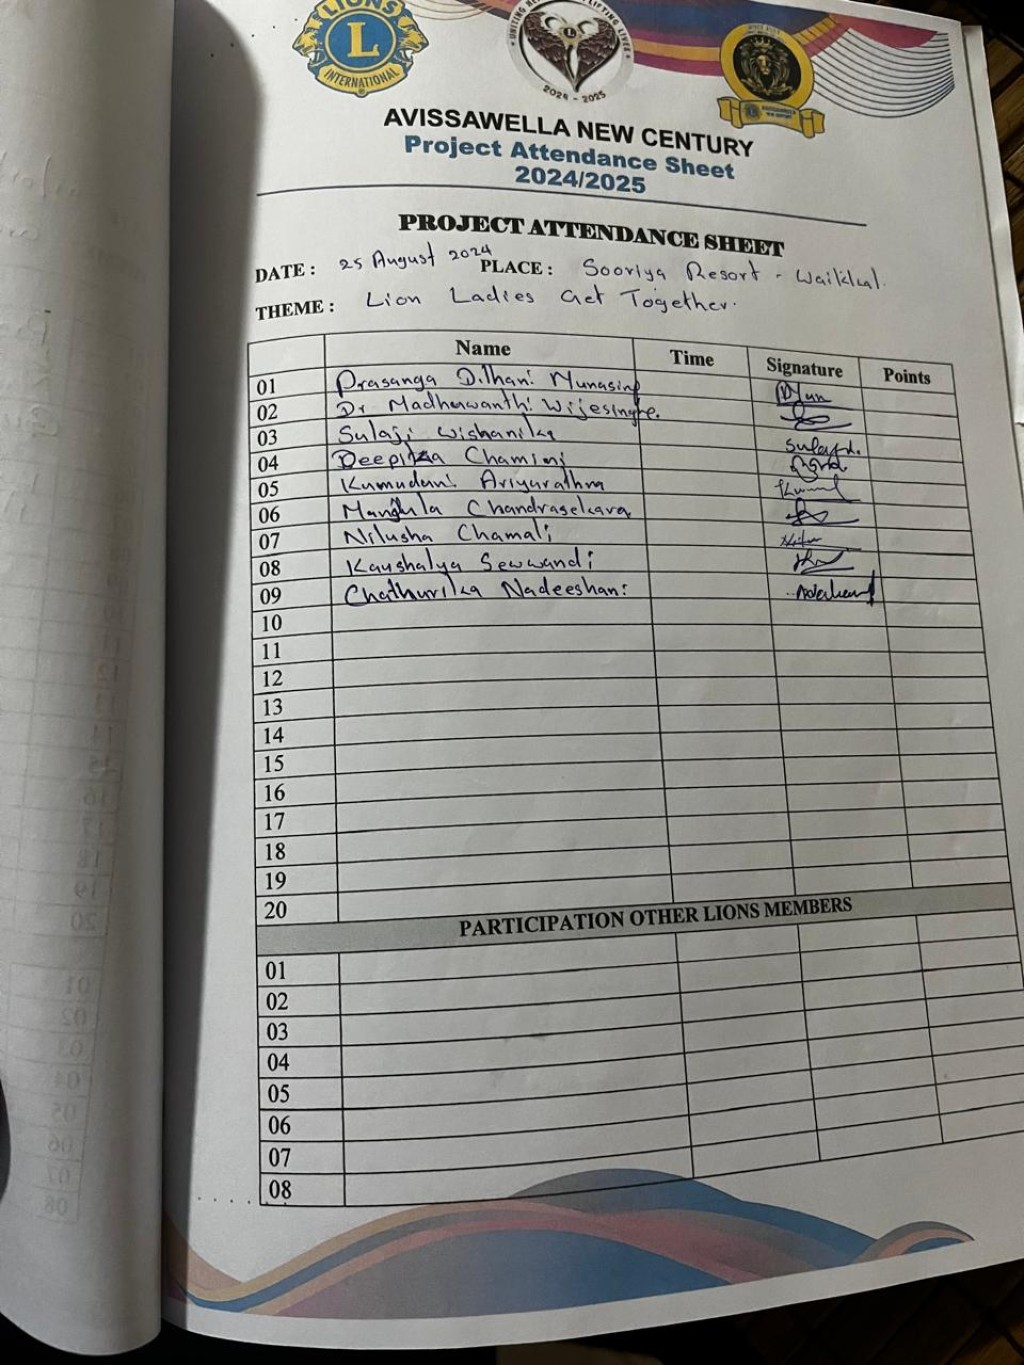 LIONS
L
INTERNATIONAL
2024 - 2025
AVISSAWELLA NEW CENTURY
Project Attendance Sheet
2024/2025
PROJECT ATTENDANCE SHEET
DATE : 25 August 2024 PLACE : Sooriya Resort - Waikkal.
THEME : Lion Ladies Get Together.
Name Time Signature Points
01 Prasanga Dilhani Munasing
02 Dr Madhuwanthi Wijesinghe.
03 Sulaji Wishanika
04 Deepika Chamini
05 Kumuduni Ariyarathna
06 Manjula Chandrasekara
07 Nilusha Chamali
08 Kaushalya Sewwandi
09 Chathurika Nadeeshani
10
11
12
13
14
15
16
17
18
19
20
PARTICIPATION OTHER LIONS MEMBERS
01
02
03
04
05
06
07
08